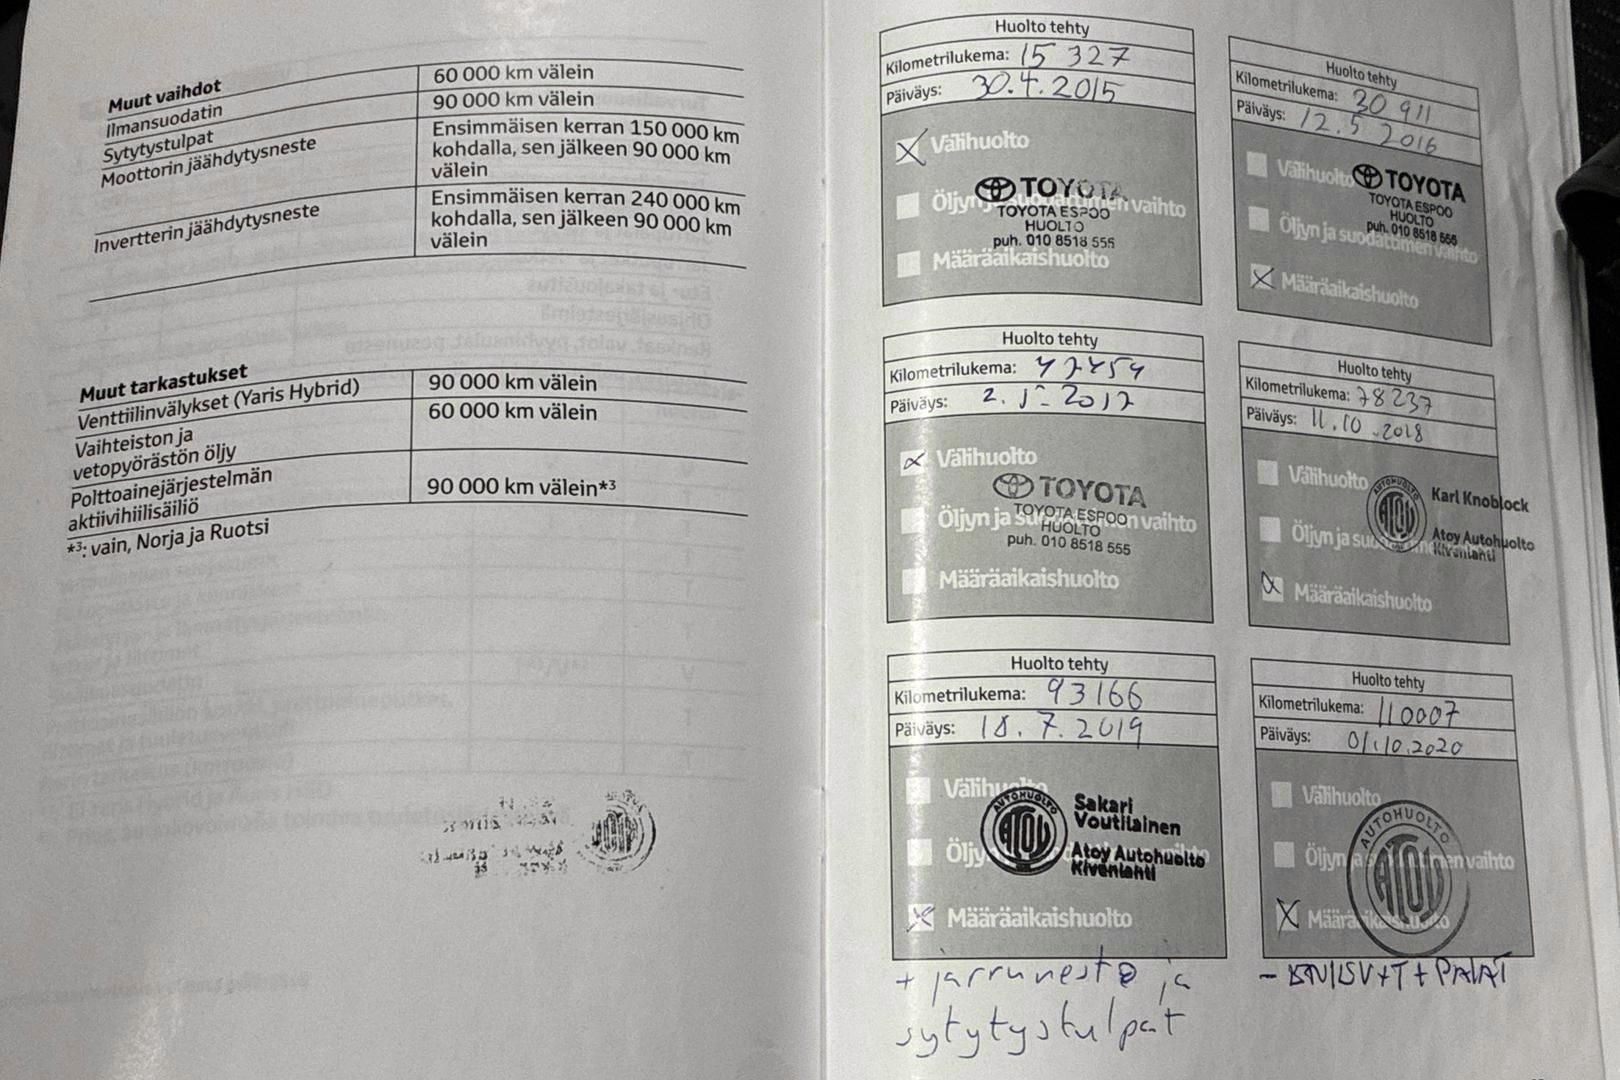 Muut vaihdot
Ilmansuodatin
60 000 km välein
Sytytystulpat
90 000 km välein
Moottorin jäähdytysneste
Ensimmäisen kerran 150 000 km
kohdalla, sen jälkeen 90 000 km
välein
Invertterin jäähdytysneste
Ensimmäisen kerran 240 000 km
kohdalla, sen jälkeen 90 000 km
välein
Muut tarkastukset
Venttiilinvälykset (Yaris Hybrid)
90 000 km välein
Vaihteiston ja
vetopyörästön öljy
60 000 km välein
Polttoainejärjestelmän
aktiivihiilisäiliö
90 000 km välein*3
*3: vain, Norja ja Ruotsi
Huolto tehty
Kilometrilukema: 15 327
Päiväys: 30.4.2015
Välihuolto
TOYOTA
Öljyn ja suodattimen vaihto
TOYOTA ESPOO
HUOLTO
puh. 010 8518 555
Määräaikaishuolto
Huolto tehty
Kilometrilukema: 30 911
Päiväys: 12.5 2016
Välihuolto
TOYOTA
TOYOTA ESPOO
HUOLTO
puh. 010 8518 555
Öljyn ja suodattimen vaihto
Määräaikaishuolto
Huolto tehty
Kilometrilukema: 47454
Päiväys: 2. 2017
Välihuolto
TOYOTA
TOYOTA ESPOO
Öljyn ja suodattimen vaihto
HUOLTO
puh. 010 8518 555
Määräaikaishuolto
Huolto tehty
Kilometrilukema: 78237
Päiväys: 11.10.2018
Välihuolto
AUTOHUOLTO
ATOY
Karl Knoblock
Öljyn ja suodattimen vaihto
Atoy Autohuolto
Kivenlahti
Määräaikaishuolto
Huolto tehty
Kilometrilukema: 93166
Päiväys: 18.7.2019
Välihuolto
AUTOHUOLTO
ATOY
Sakari
Voutilainen
Öljyn ja suodattimen vaihto
Atoy Autohuolto
Kivenlahti
Määräaikaishuolto
+ jarruneste ja
sytytystulpat
Huolto tehty
Kilometrilukema: 110007
Päiväys: 01.10.2020
Välihuolto
AUTOHUOLTO
Öljyn ja suodattimen vaihto
ATOY
Määräaikaishuolto
+ PALAT